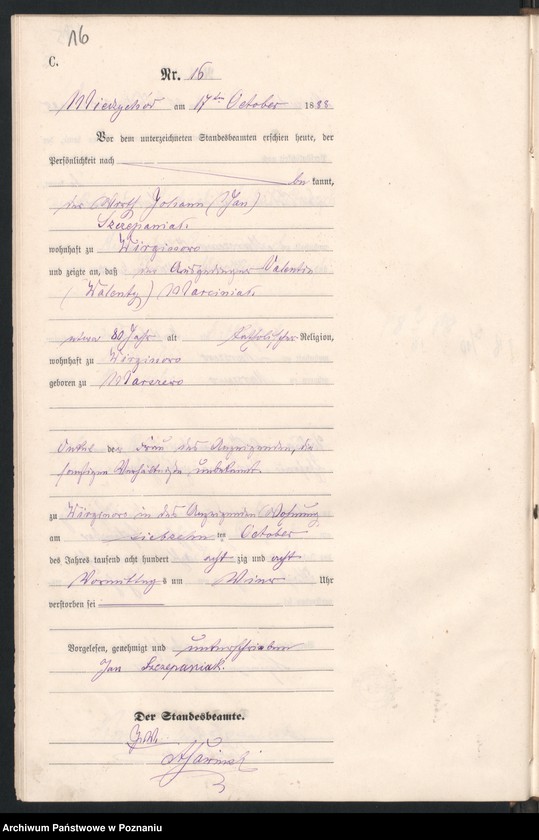 16
C.
Nr. 16
am 17ten October 1888
Vor dem unterzeichneten Standesbeamten erschien heute, der
Persönlichkeit nach
be kannt,
der Wirth Johann (Jan)
Szczepaniak.
wohnhaft zu
und zeigte an, daß der Ausgedinger Valentin
(Walenty) Marciniak.
etwa 80 Jahr alt katholischer Religion,
wohnhaft zu
geboren zu
Onkel der Frau des Anzeigenden, die
sonstigen Verhältnisse unbekannt
zu in des Anzeigenden Wohnung
am siebzehn ten October
des Jahres tausend acht hundert acht zig und acht
Vormittag s um Uhr
verstorben sei
Vorgelesen, genehmigt und unterschrieben
Jan Szczepaniak.
Der Standesbeamte.
Archiwum Państwowe w Poznaniu